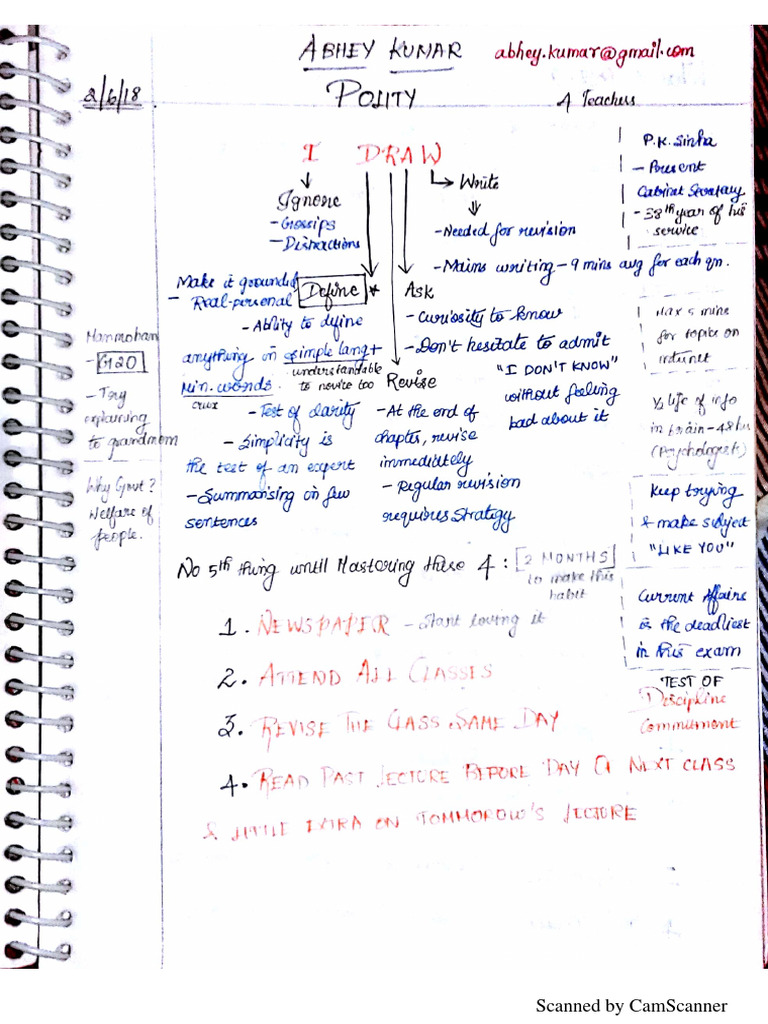 ABHEY KUMAR abhey.kumar@gmail.com
2/6/18 POLITY 4 Teachers
I DRAW
Ignore
- Gossips
- Distractions
Write
- Needed for revision
- Mains writing - 9 mins avg for each qn.
Make it grounded
- Real-personal
Define *
- Ability to define
anything in simple lang +
understandable
to novice too
Min. words
crux
- Test of clarity
- Simplicity is
the test of an expert
- Summarising in few
sentences
Ask
- Curiosity to know
- Don't hesitate to admit
"I DON'T KNOW"
without feeling
bad about it
Revise
- At the end of
chapter, revise
immediately
- Regular revision
requires strategy
Manmohan
- G20
- Try
explaining
to grandmom
Why Govt?
Welfare of
people.
P.K. Sinha
- Present
Cabinet Secretary
- 38th year of his
service
Max 5 mins
for topics on
internet
½ life of info
in brain - 48 hrs
(Psychologists)
Keep trying
& make subject
"LIKE YOU"
Current Affairs
is the deadliest
in this exam
TEST OF
Discipline
Commitment
No 5th thing until Mastering these 4 : [2 MONTHS]
to make this
habit
1. NEWSPAPER - Start loving it
2. ATTEND ALL CLASSES
3. REVISE THE CLASS SAME DAY
4. READ PAST LECTURE BEFORE DAY OF NEXT CLASS
& LITTLE EXTRA ON TOMMOROW'S LECTURE
Scanned by CamScanner